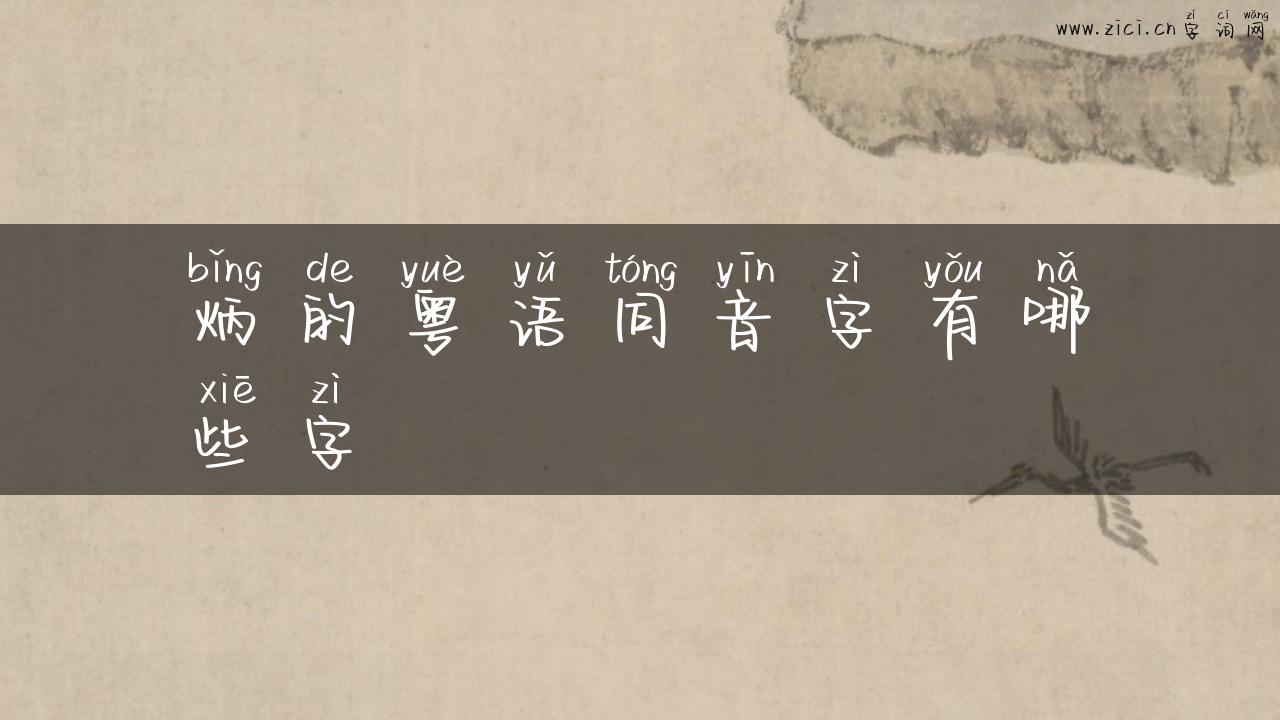 zì cí wǎng
www.zici.cn 字词网
bǐng de yuè yǔ tóng yīn zì yǒu nǎ
炳的粤语同音字有哪
xiē zì
些字